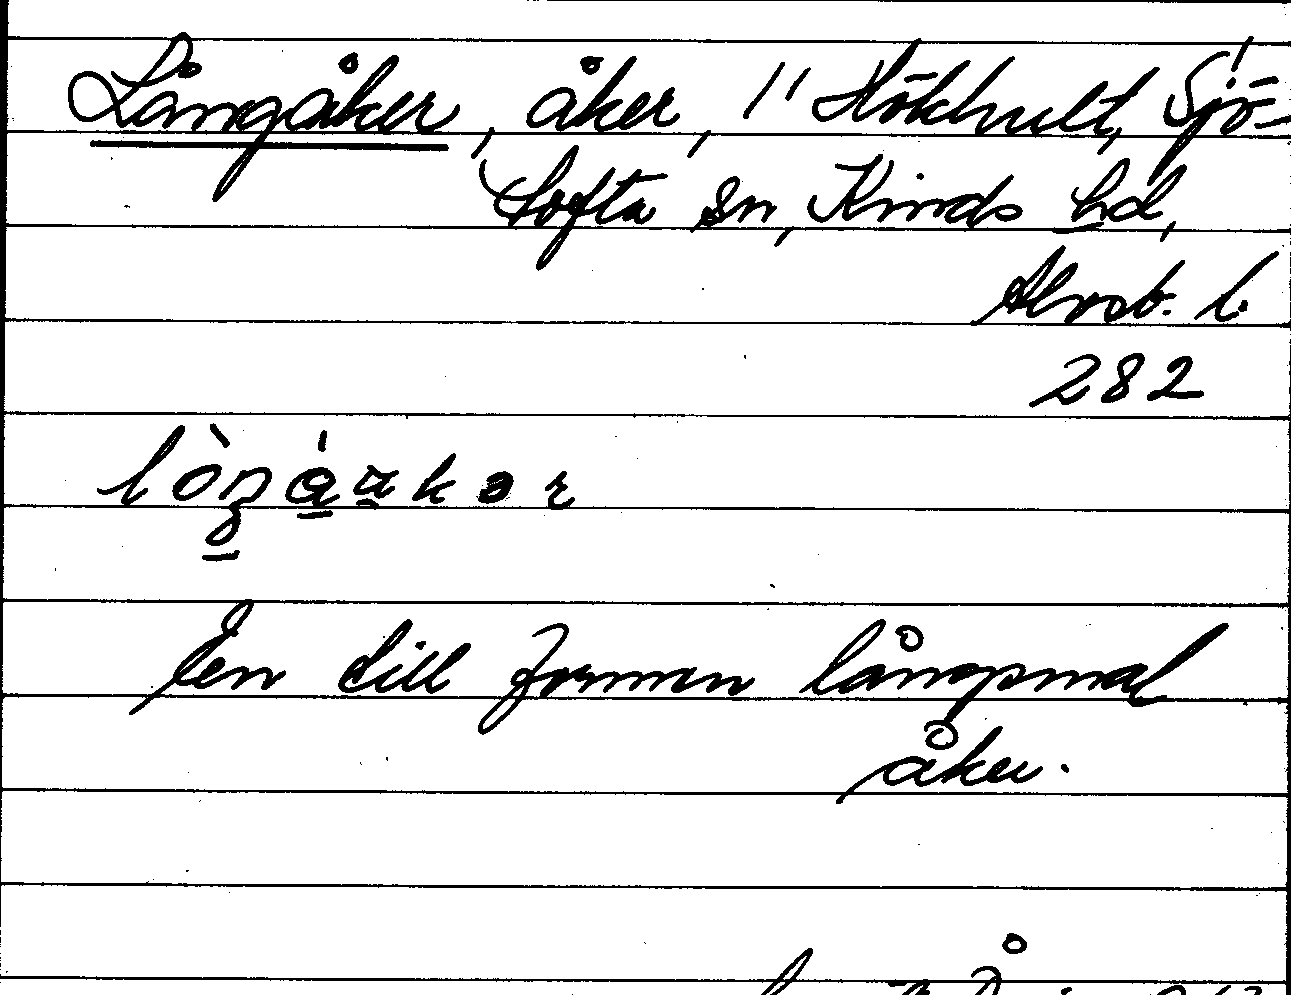 Långåker, åker, 1/1 Hökhult, Sjö-
tofta sn, Kinds hd,
Älvsb. l.
282
En till formen långsmal
åker.